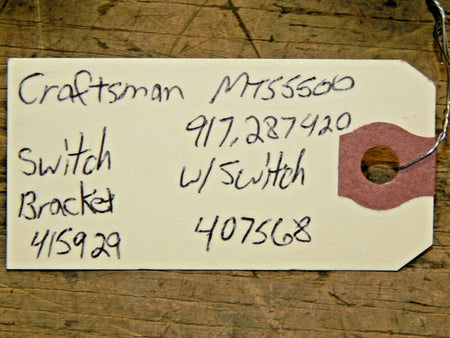 Craftsman MTS5500
917.287420
Switch w/Switch
Bracket
415929 407568